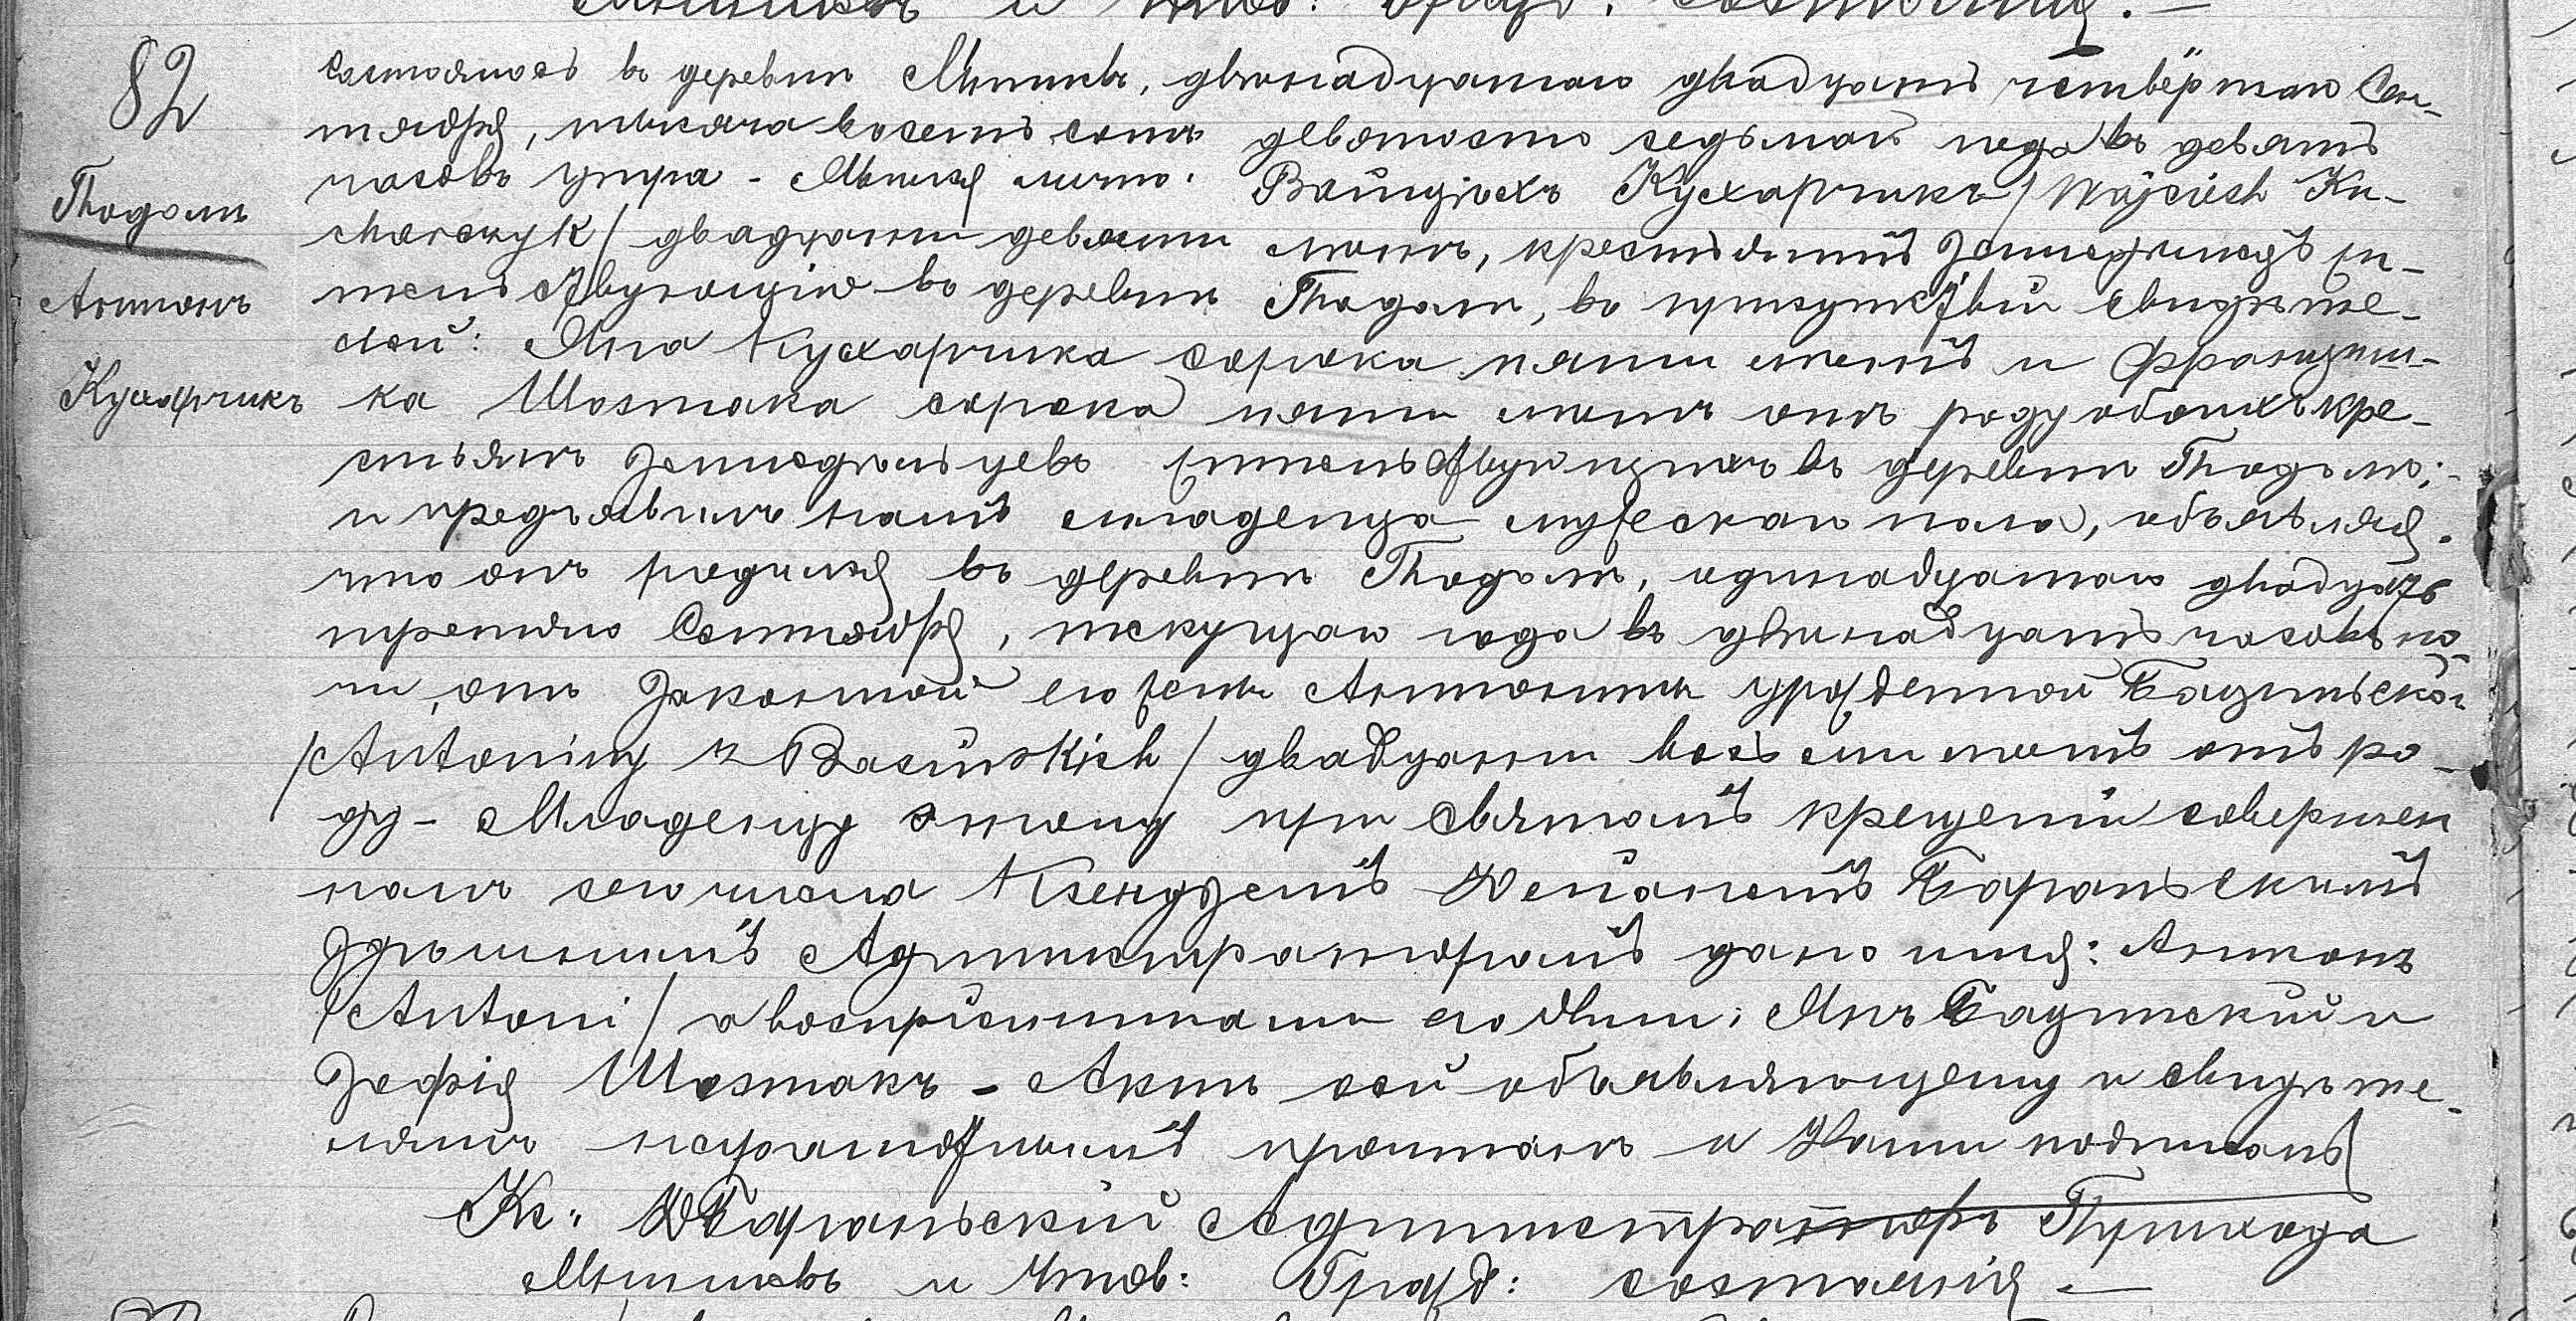 82
Подоли
Антонъ
Кухарчикъ
Состоялось въ деревни Мниневъ, двѣнадцатаго двадцать четвёртаго Сен-
тября, тысяча восемь сотъ девяносто седьмаго года въ девять
часовъ утра - Явился лично: Войцѣхъ Кухарчикъ /Wojciech Ku-
charczyk/ двадцати девяти лѣтъ, крестьянинъ земледѣлецъ жи-
тельствующій въ деревни Подоли, въ присутствіи свидѣте-
лей: Яна Кухарчика сорока пяти лѣтъ и Францишка
ка Шостака сорока пяти лѣтъ отъ роду обоихъ кре-
стьянъ земледѣльцевъ жительствующихъ въ деревни Подоли;-
и предъявилъ намъ младенца мужескаго пола, объявляя
что онъ родился въ деревни Подоли, одинадцатаго двадцать
третяго Сентября, текущаго года въ двѣнадцать часовъ но-
чи, отъ законной его жены Антонины урожденной Бацинской
/Antoniny z Bacińskich/ двадцати восьми лѣтъ отъ ро-
ду - Младенцу этому при Святомъ крещеніи совершен
номъ сего числа Ксендземъ Барańскимъ
здѣшнимъ Администраторомъ дано имя: Антонъ
/Antoni/ а воспріемниками его были: Янъ Бацинскій и
Зофія Шостакъ - Актъ сей объявляющему и свидѣте-
лямъ неграмотнымъ прочитанъ и Нами подписанъ
Кс: Бараньскій Администраторъ Прихода
Мнишевъ и Чинов: Гражд: состоянія -